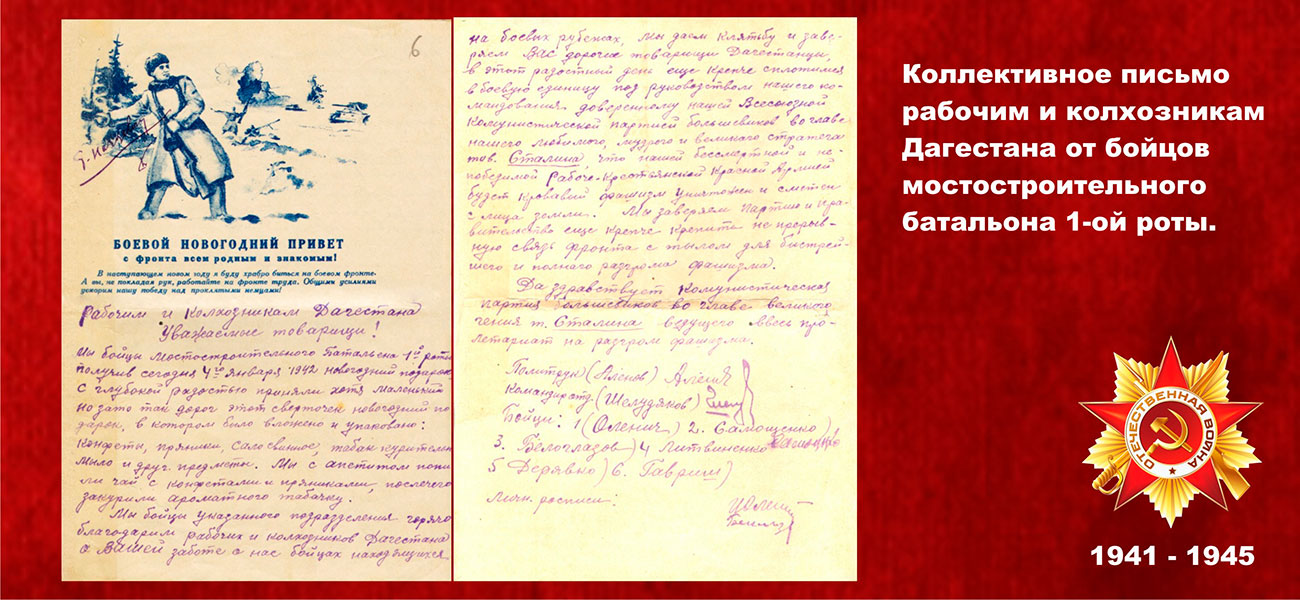 6
БОЕВОЙ НОВОГОДНИЙ ПРИВЕТ
с фронта всем родным и знакомым!
В наступающем новом году я буду храбро биться на боевом фронте-
А вы, не покладая рук, работайте на фронте труда. Общими усилиями
ускорим нашу победу над проклятыми немцами!
Рабочим и Колхозникам Дагестана
Уважаемые товарищи!
Мы бойцы Мостостроительного Батальона 1ой роты
получив сегодня 4го января 1942 новогодний подарок
с глубокой радостью приняли хотя маленький
но зато так дорог этот сверточек новогодний по
дарок, в котором было вложено и упаковано:
конфеты, пряники, сало свиное, табак курительн
мыло и друг. предметы. Мы с апетитом попи
ли чай с конфетами и пряниками, после чего
закурили ароматного табачку.
Мы бойцы указанного подразделения горячо
благодарим рабочих и колхозников Дагестана
о Вашей заботе о нас бойцах находящихся
на боевых рубежах, мы даем клятьбу и заве-
ряем Вас дорогие товарищи Дагестанци,
в этот радостный день еще крепче сплотимся
в боевую единицу под руководством нашего ко-
мандования доверенному нашей Всесоюзной
Комунистической партией большевиков во главе
нашего любимого, мудрого и великого стратега
тов. Сталина что нашей бессмертной и не-
победимой Рабоче-Крестьянской Красной Армией
будет кровавий фашизм уничтожен и сметен
с лица земли. Мы заверяем партию и пра-
вительство еще крепче крепить не прерыв-
ную связь фронта с тылом для быстрей-
шего и полного разгрома фашизма.
Да здравствует комунистическая
партия большевиков во главе великого
гения т. Сталина ведущего ввесь про-
летариат на разгром фашизма.
Политрук (Аленов)
Командир отд (Шелудяков)
Бойци: 1 (Оленич) 2. Самощенко)
3. Белоглазов) 4 Литвиненко
5 Деревько) 6. Гавриш)
Личн. росписи:
Коллективное письмо
рабочим и колхозникам
Дагестана от бойцов
мостостроительного
батальона 1-ой роты.
ОТЕЧЕСТВЕННАЯ ВОЙНА
1941 - 1945